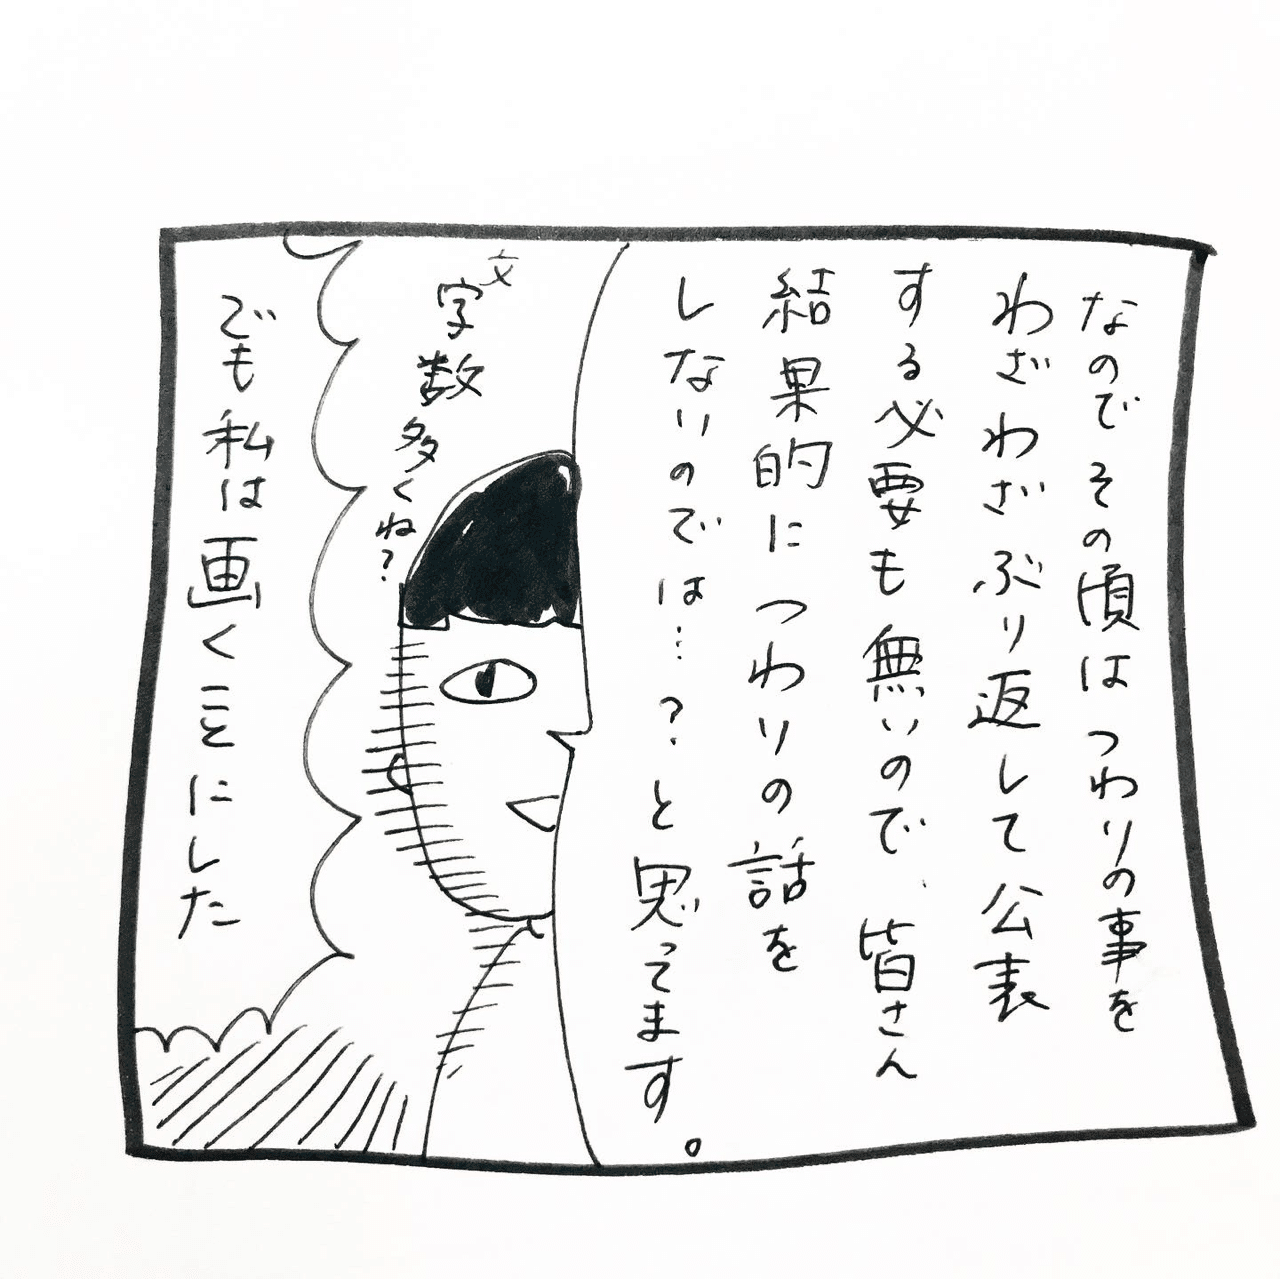 なのでその頃はつわりの事を
わざわざぶり返して公表
する必要も無いので、皆さん
結果的につわりの話を
しないのでは…?と思ってます。
文字数多くね?
でも私は画くことにした